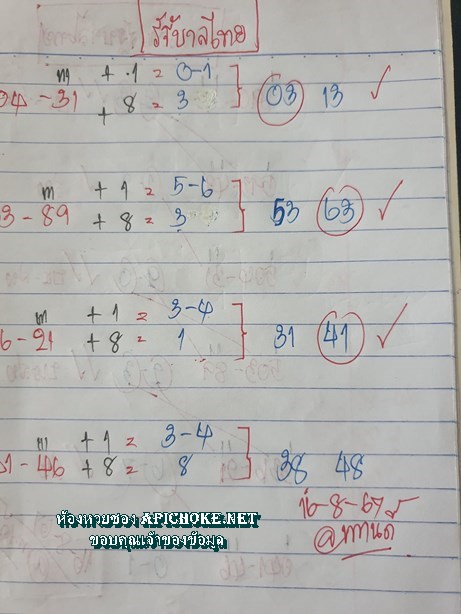 รัฐบาลไทย
ต + 1 = 0-1
04 - 31 + 8 = 3 03 13
ต + 1 = 5-6
3 - 89 + 8 = 3 53 63
ต + 1 = 3-4
6 - 21 + 8 = 1 31 41
ต + 1 = 3-4
1 - 46 + 8 = 8 38 48
16-8-67
ห้องหวยซอง APICHOKE.NET
ขอบคุณเจ้าของข้อมูล